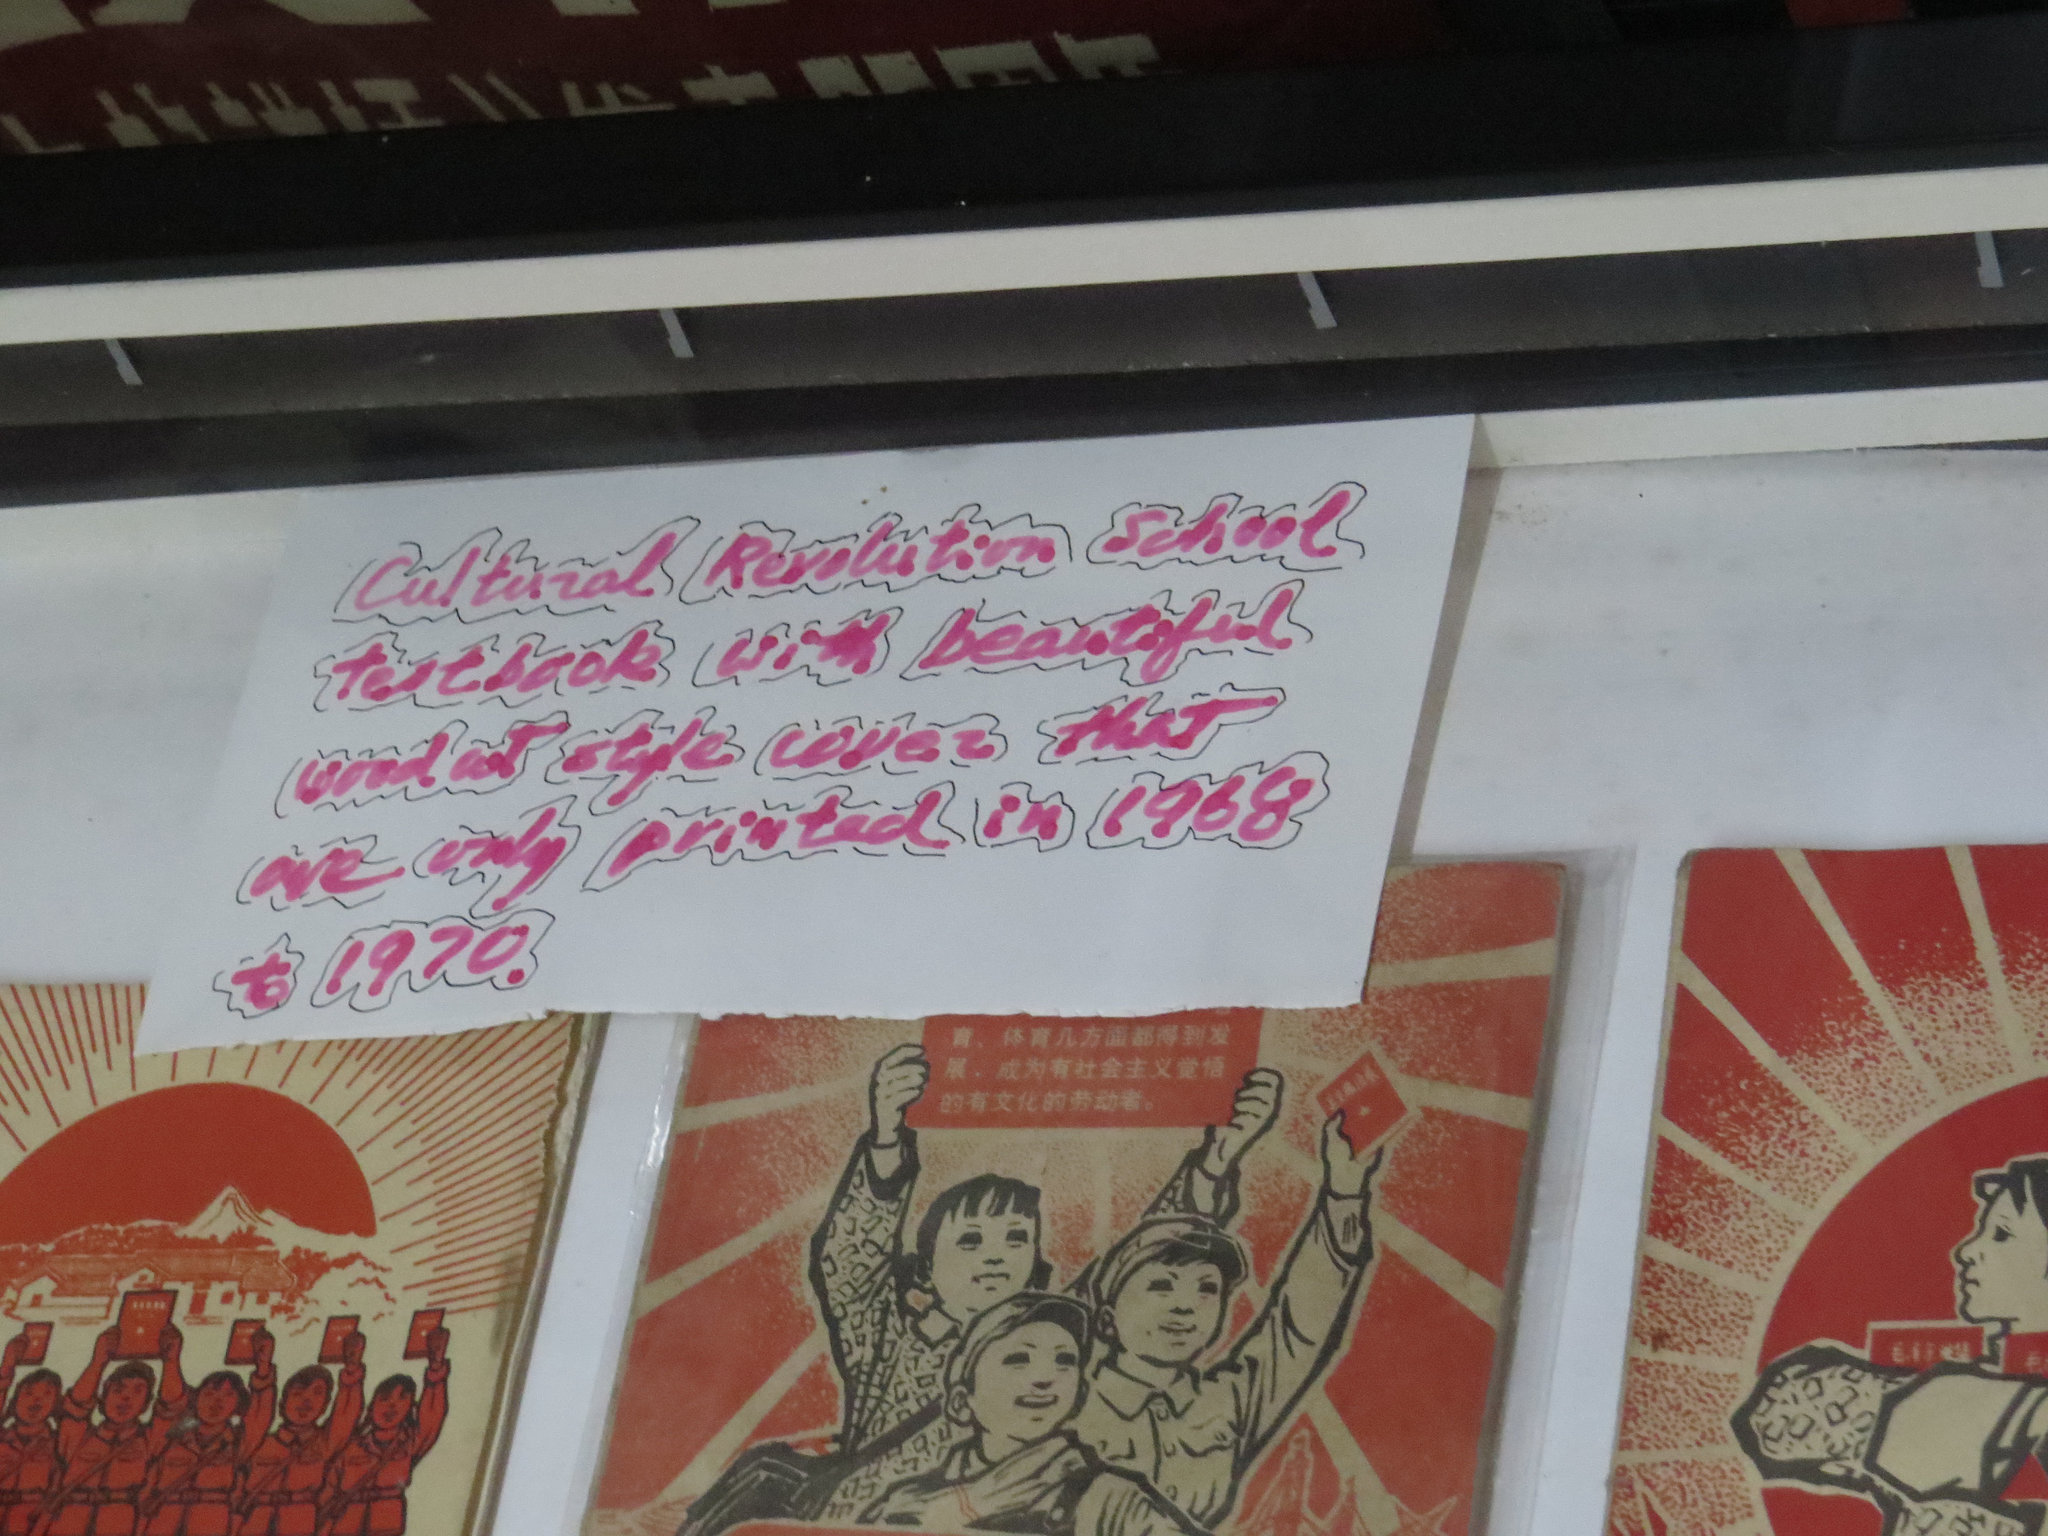 Cultural Revolution School
textbook with beautiful
woodcut style cover that
are only printed in 1968
to 1970.
育、体育几方面都得到发
展,成为有社会主义觉悟
的有文化的劳动者。